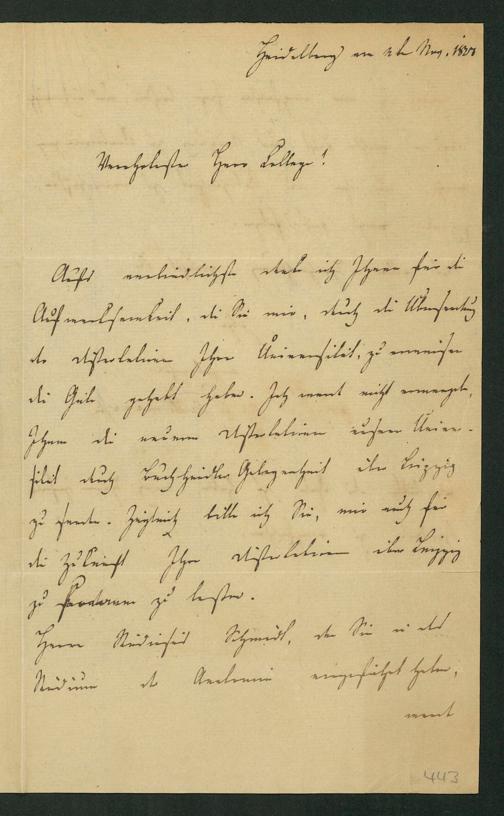 Heidelberg am 2t Nov.
Verehrtester Herr College!
Aufs verbindlichste danke ich Ihnen für die
Aufmerksamkeit, die Sie mir, durch die Übersendung
der Dissertationen Ihrer Universität, zu erweisen
die Güte gehabt haben. Ich werde nicht ermangeln,
Ihnen die neuern Dissertationen unserer Univer-
sität durch Buchhändler Gelegenheit über Leipzig
zu senden. Zugleich bitte ich Sie, mir auch für
die Zukunft Ihre Dissertationen über Leipzig
zu zu lassen.
Herrn Studiosus Schmidt, den Sie in das
Studium der Anatomie eingeführt haben,
werde
443